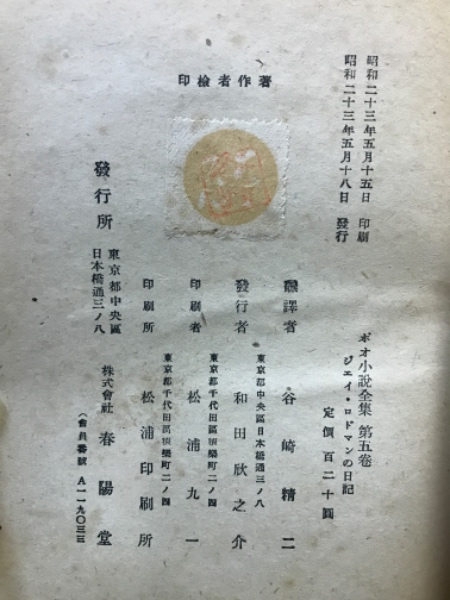 著作者検印
昭和二十三年五月十五日　印刷
昭和二十三年五月十八日　發行
ポオ小說全集　第五卷
ジュイ・ロドマンの日記
定價　百二十圓
飜譯者　谷崎精二
東京都中央區日本橋通三ノ八
發行者　和田欣之介
東京都千代田區 町二ノ四
印刷者　松浦九一
東京都千代田區 町二ノ四
印刷所　松浦印刷所
發行所
東京都中央區
日本橋通三ノ八
株式會社　春陽堂
（會員番號　A一一九〇三三）